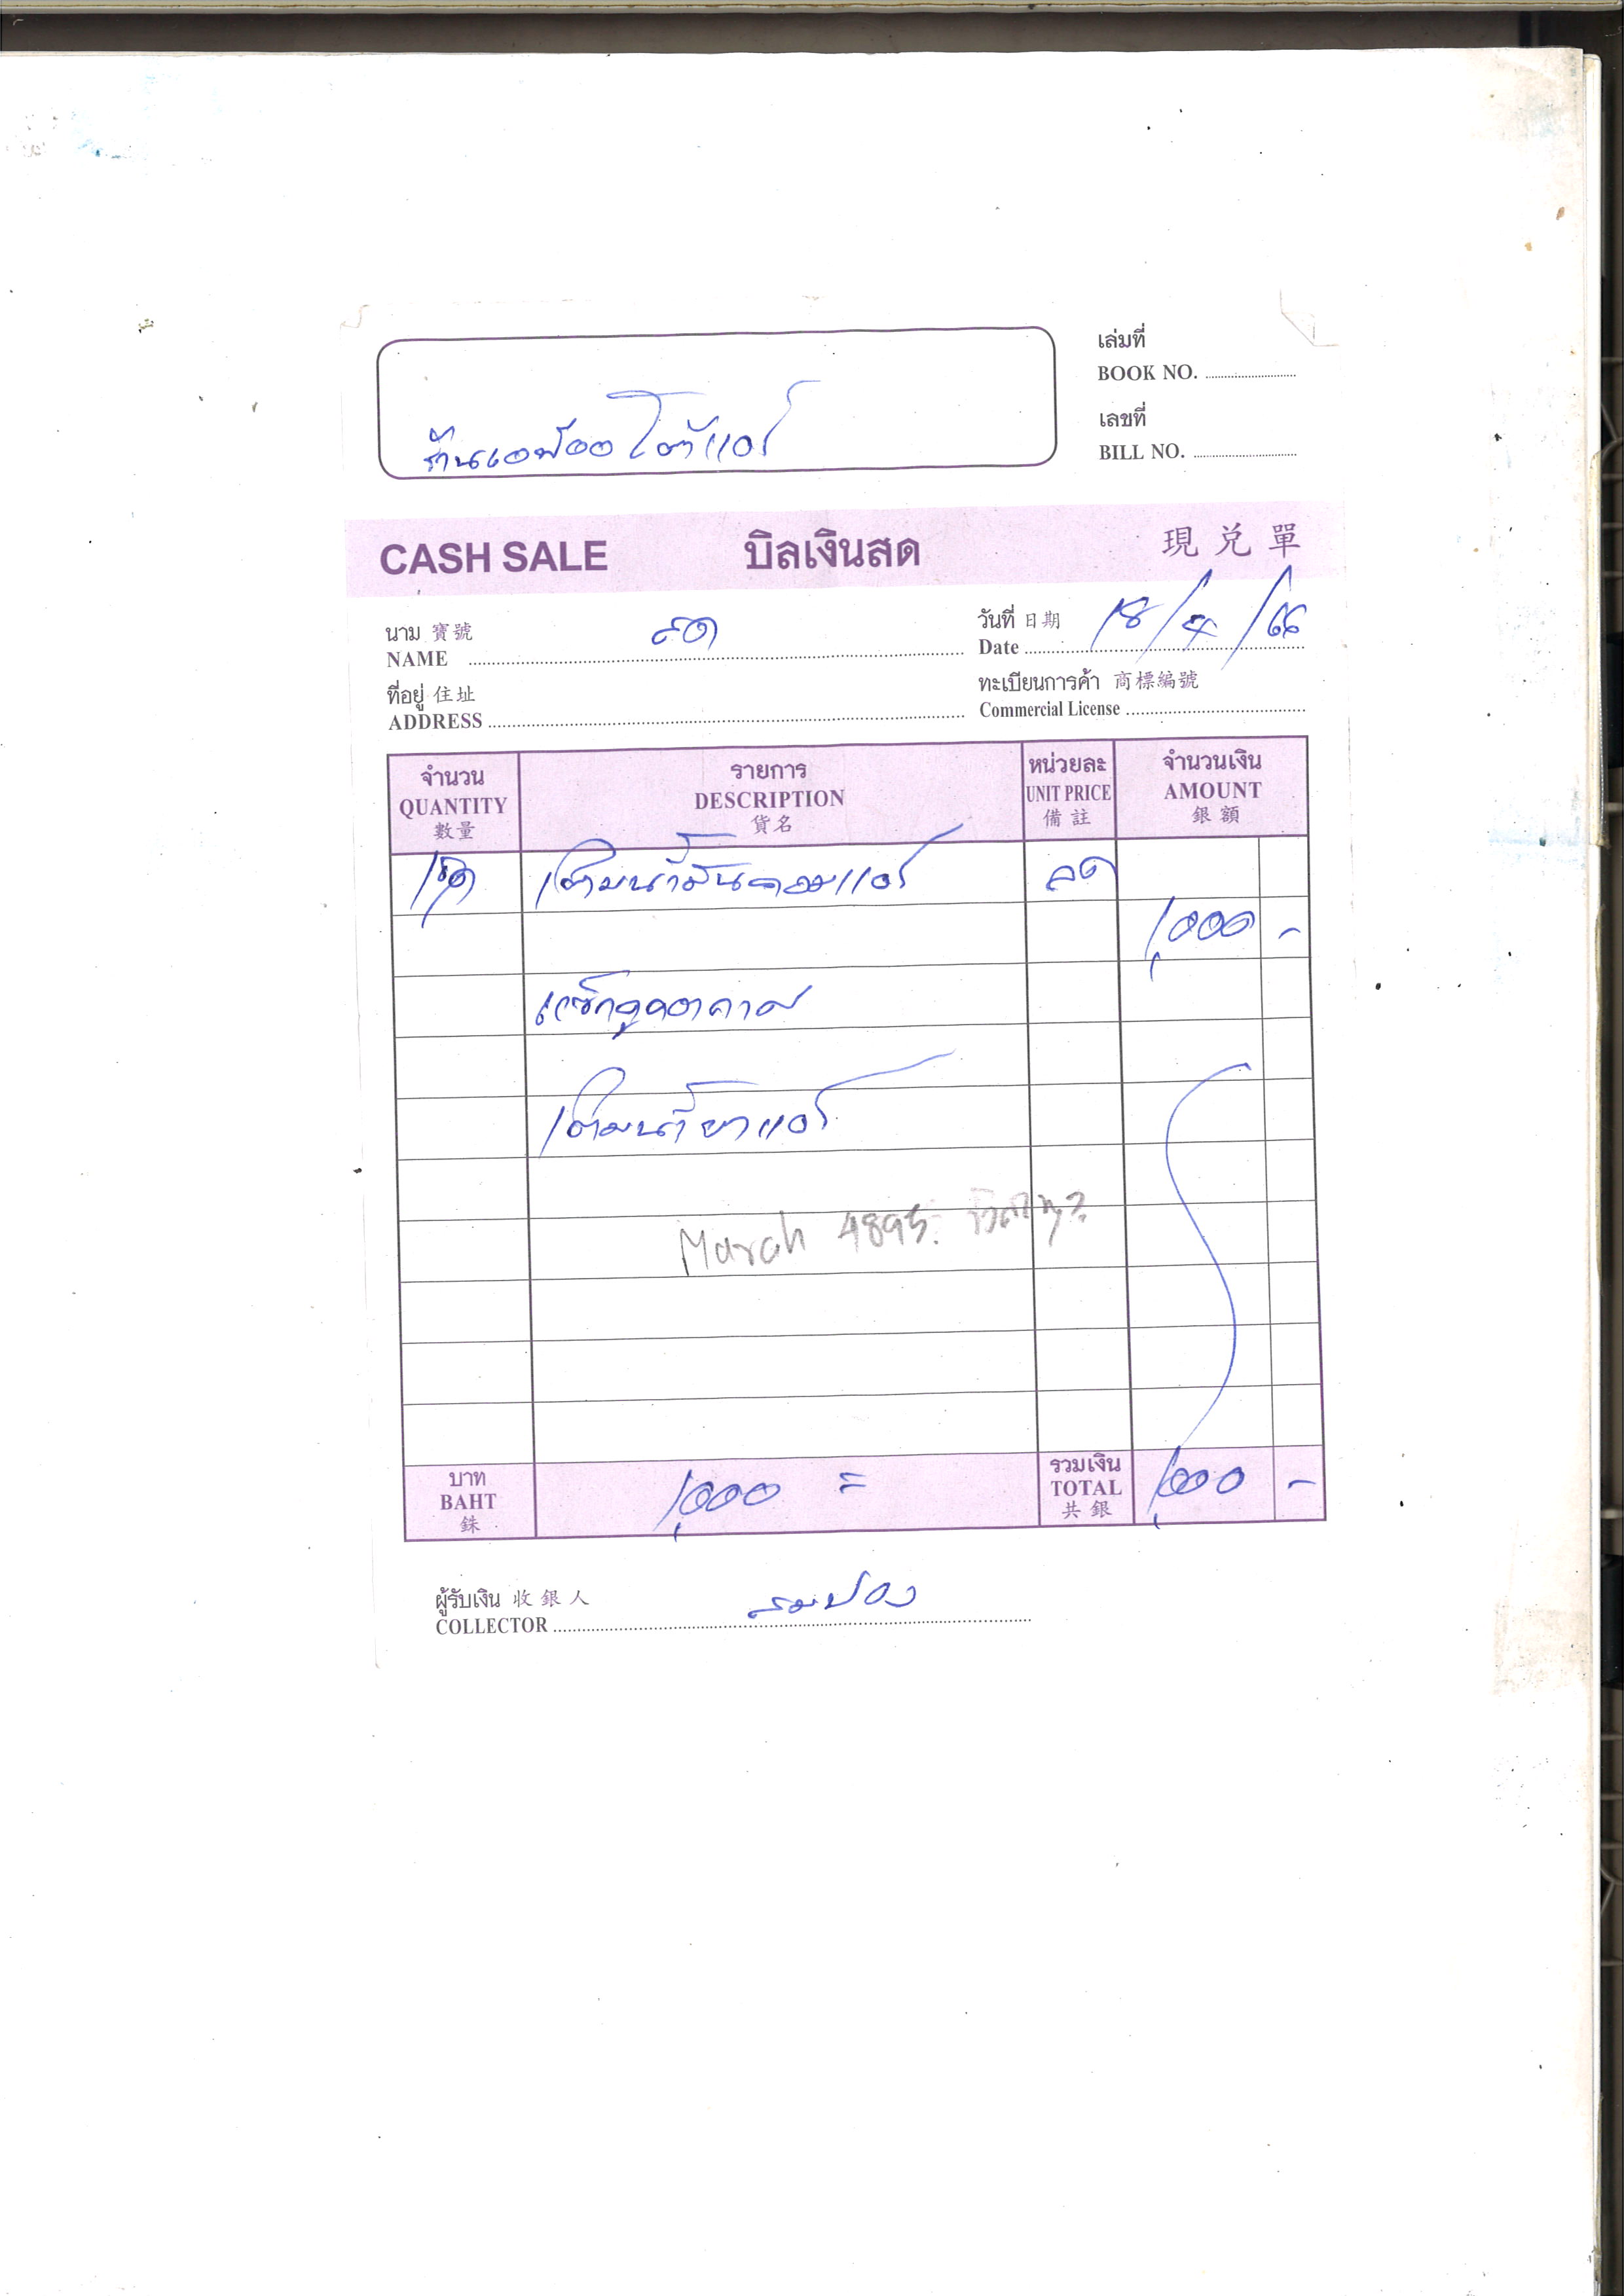 เล่มที่
BOOK NO.
เลขที่
BILL NO.
ร้าน โต้แอร์
CASH SALE บิลเงินสด 現兌單
นาม 寶號
NAME สด
วันที่ 日期
Date 18/4/66
ที่อยู่ 住址
ADDRESS
ทะเบียนการค้า 商標編號
Commercial License
จำนวน รายการ หน่วยละ จำนวนเงิน
QUANTITY DESCRIPTION UNIT PRICE AMOUNT
數量 貨名 備註 銀額
เติมน้ำมันคอมแอร์ ลด
1,000 -
เติมน้ำยาแอร์
March 4895.
บาท รวมเงิน
BAHT 1,000 = TOTAL 1,000 -
銖 共銀
ผู้รับเงิน 收銀人
COLLECTOR สมปอง